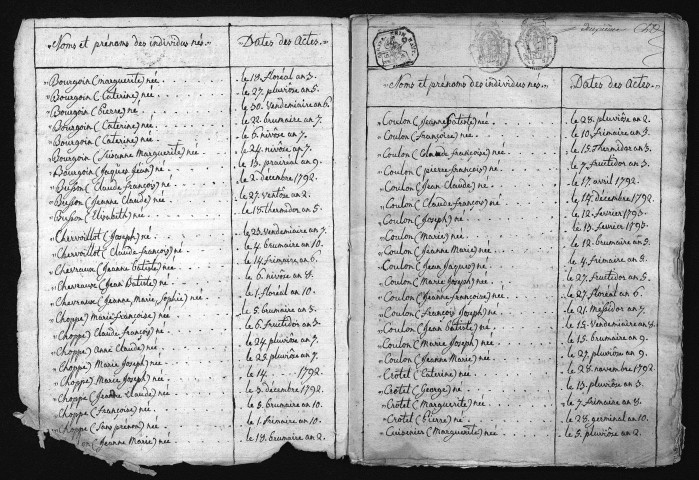 Noms et prénoms des individus nés. Dates des Actes.
Bourgoin (marguerite) née . . . . le 19. floréal an 3.
Bourgoin (Caterine) née . . . . le 27. pluviôse an 5.
Bourgoin (Pierre) né . . . . le 30. Vendemiaire an 6.
Bourgoin (Caterine) née . . . . le 22. brumaire an 7.
Bourgoin (Caterine) née . . . . le 6. nivôse an 7.
Bourgoin (Susanne Marguerite) née . . . . le 24. nivôse an 7.
Bourgoin (Jaques Jean) né . . . . le 13. prairéal an 9.
Busson (Claude françois) né . . . . le 2. décembre 1792.
Busson (Jeanne Claude) née . . . . le 27. ventôse an 2.
Busson (Elizabeth) née . . . . le 18. thermidor an 5.
Chervoillot (Joseph) né . . . . le 23. Vendemiaire an 7.
Chervoillot (Claude françois) né . . . . le 4. brumaire an 10.
Chevraux (Jeanne batiste) née . . . . le 14. frimaire an 6.
Chevraux (Jean Batiste) né . . . . le 6. nivôse an 8.
Chevraux (Jeanne Marie Sophie) née . . . . le 1. floréal an 10.
Choppe (Marie françoise) née . . . . le 5. brumaire an 3.
Choppe (Claude françois) né . . . . le 6. fructidor an 3.
Choppe (Anne Claude) née . . . . le 24. pluviôse an 7.
Choppe (Marie Joseph) née . . . . le 25. pluviôse an 7.
Choppe (Marie Joseph) née . . . . le 14. . . . 1792.
Choppe (Jeanne Claude) née . . . . le 3. décembre 1792.
Choppe (françoise) née . . . . le 8. brumaire an 10.
Choppe (Sans prenom) né . . . . le 1. frimaire an 10.
(Jeanne Marie) née . . . . le 19. brumaire an 2.
Noms et prénoms des individus nés. Dates des Actes.
Coulon (Jeanne Batiste) née . . . . le 28. pluviôse an 2.
Coulon (françoise) née . . . . le 10. frimaire an 3.
Coulon (Claude françoise) née . . . . le 15. Thermidor an 3.
Coulon (pierre françois) né . . . . le 7. fructidor an 3.
Coulon (Jean Claude) né . . . . le 17. avril 1792.
Coulon (Claude françois) né . . . . le 14. décembre 1792.
Coulon (Joseph) né . . . . le 12. fevrier 1793.
Coulon (Marie) née . . . . le 13. fevrier 1793.
Coulon (Jeanne Marie) née . . . . le 12. brumaire an 3.
Coulon (Jean Jaques) né . . . . le 4. frimaire an 5.
Coulon (Marie Joseph) née . . . . le 27. fructidor an 5.
Coulon (Jeanne françoise) née . . . . le 27. floréal an 6.
Coulon (françois Joseph) né . . . . le 21. Messidor an 7.
Coulon (Jean batiste) né . . . . le 15. Vendemiaire an 8.
Coulon (Marie Joseph) née . . . . le 15. brumaire an 9.
Coulon (Jeanne Marie) née . . . . le 27. pluviôse an 9.
Crôtel (Caterine) née . . . . le 28. novembre 1792.
Crôtel (George) né . . . . le 13. pluviôse an 3.
Crôtel (Marguerite) née . . . . le 7. frimaire an 8.
Crôtel (Pierre) né . . . . le 28. germinal an 10.
Cuisenier (Marguerite) née . . . . le 3. pluviôse an 2.